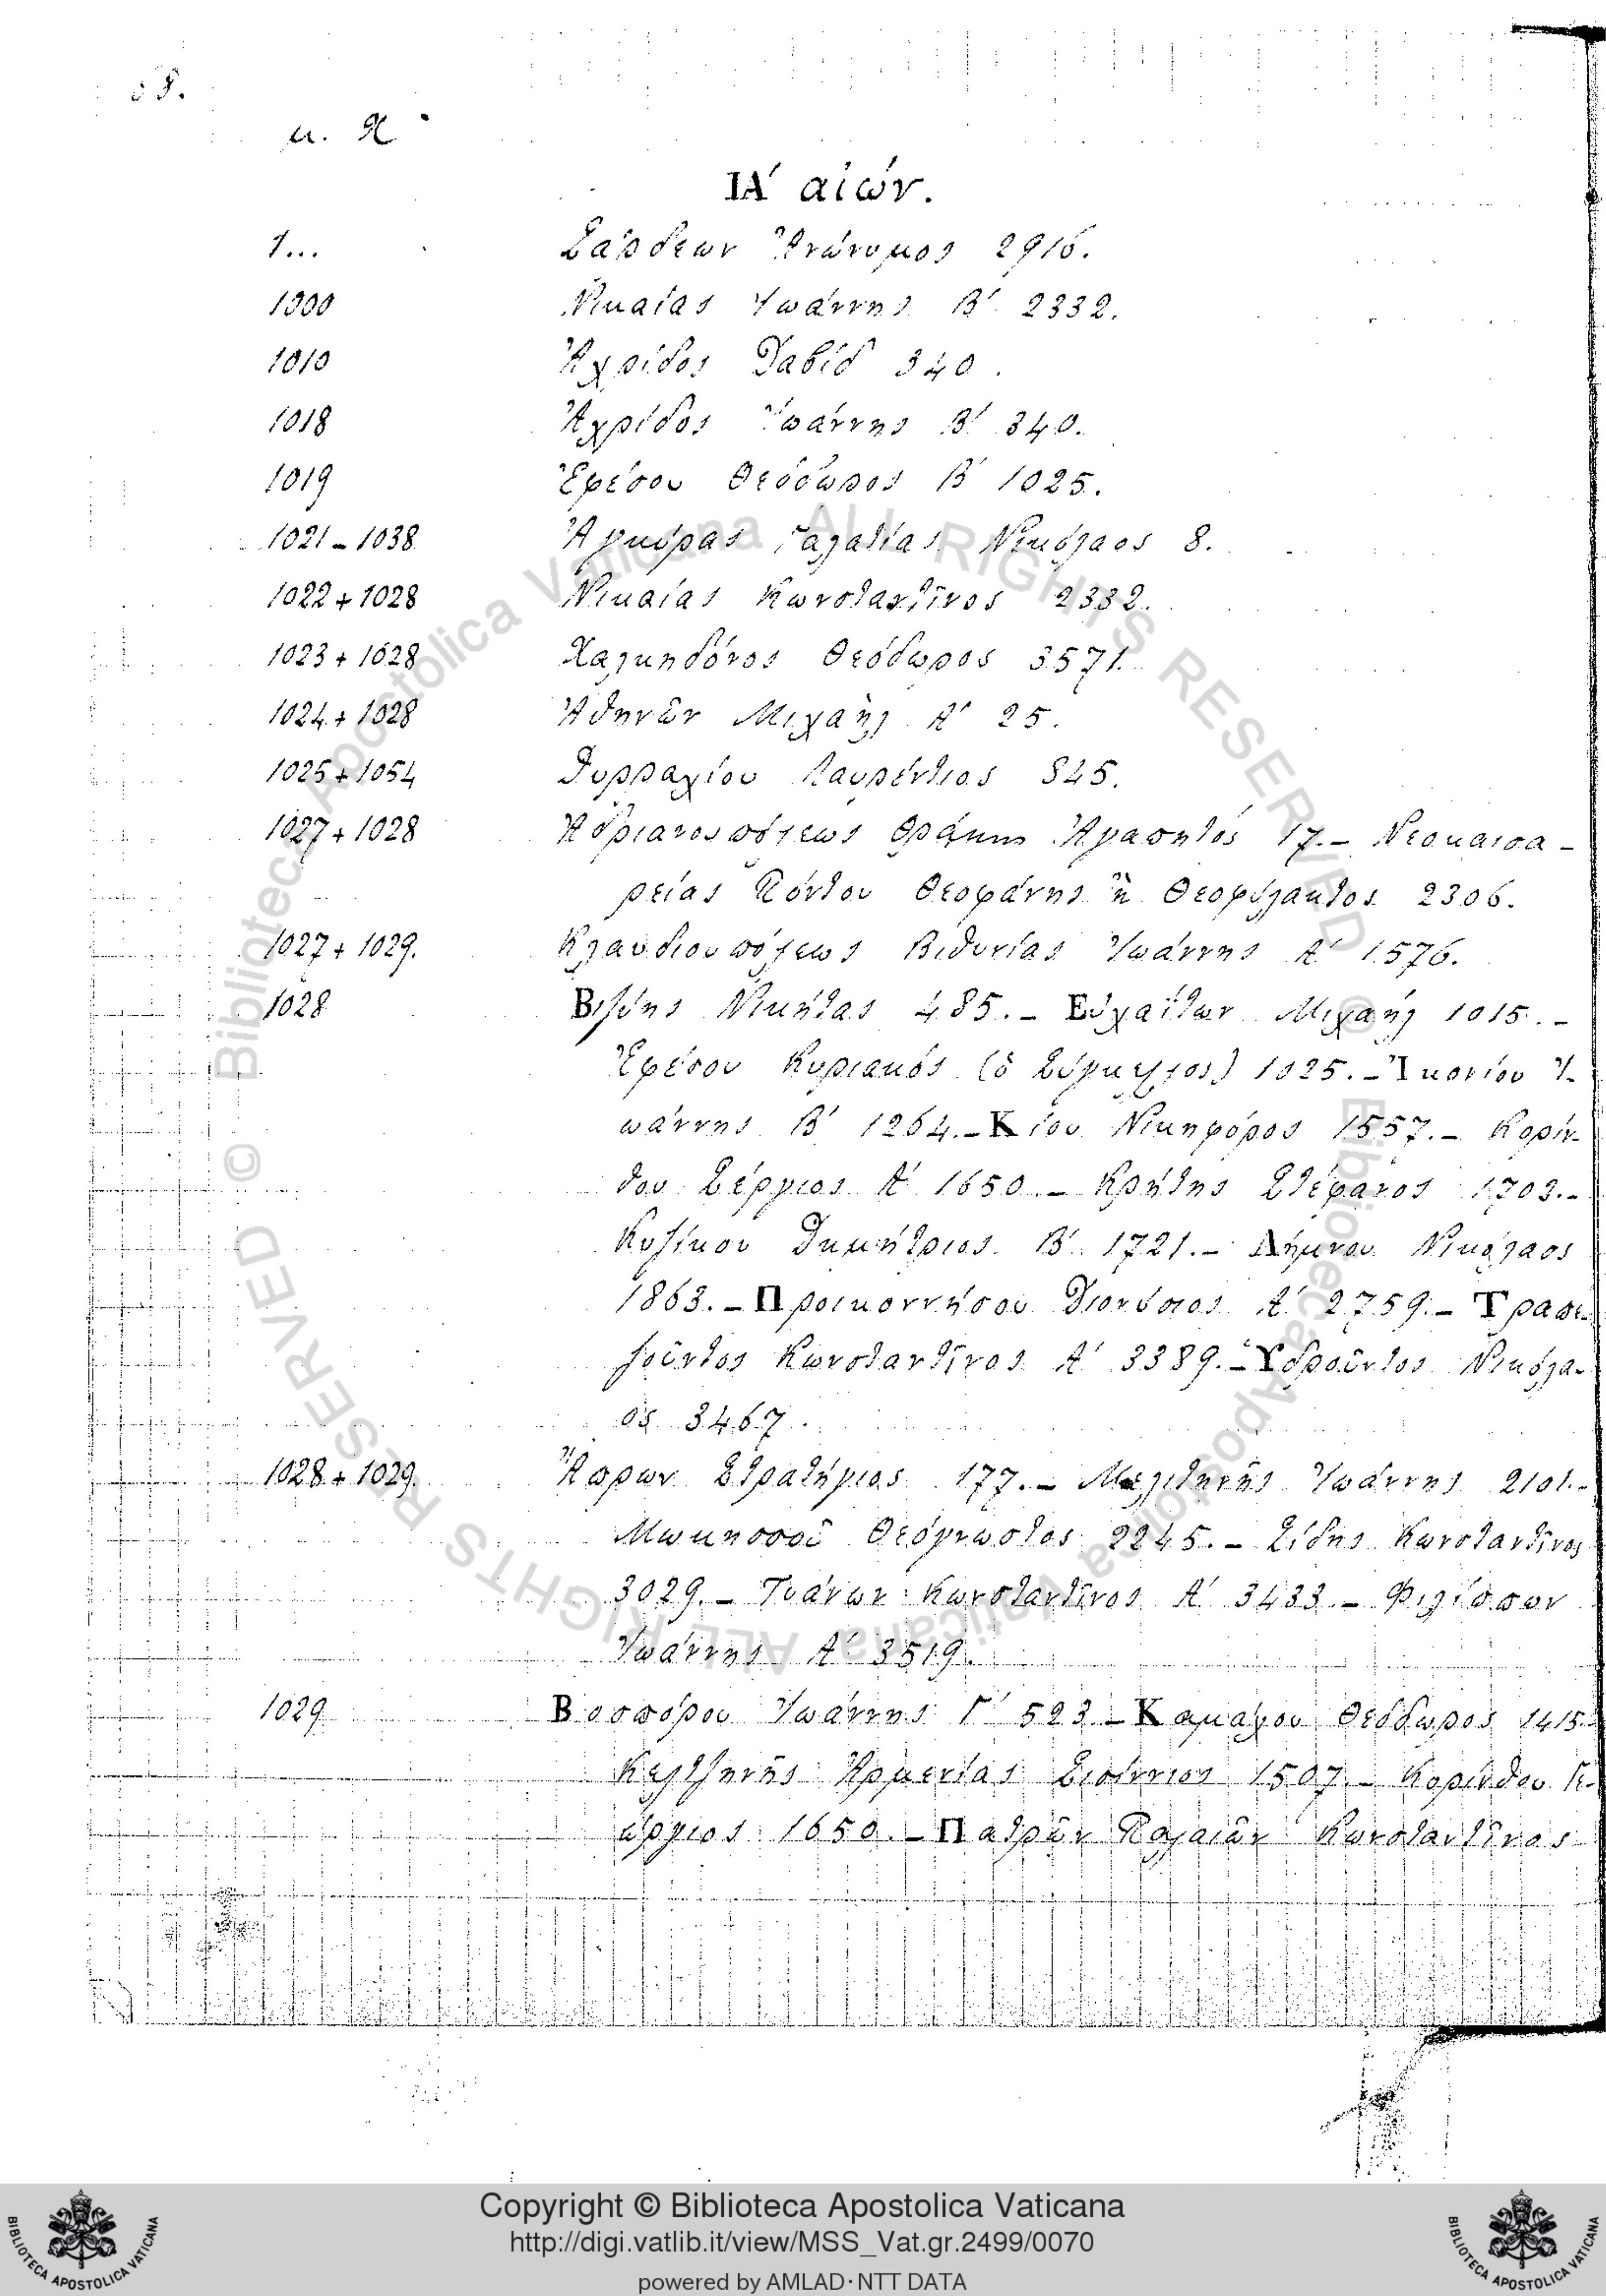 μ. Χ.
ΙΑ΄ αἰών.
1... Σάρδεων Ἀνώνυμος 2916.
1000 Νικαίας Ἰωάννης Β΄ 2332.
1010 Ἀχρίδος Δαβίδ 340.
1018 Ἀχρίδος Ἰωάννης Β΄ 340.
1019 Ἐφέσου Θεόδωρος Β΄ 1025.
1021 – 1038 Ἀγκύρας Γαλατίας Νικόλαος 8.
1022 + 1028 Νικαίας Κωνσταντῖνος 2332.
1023 + 1028 Χαλκηδόνος Θεόδωρος 3571.
1024 + 1028 Ἀθηνῶν Μιχαὴλ Α΄ 25.
1025 + 1054 Δυρραχίου Λαυρέντιος 845.
1027 + 1028 Ἀδριανουπόλεως Θράκης Ἀγαπητός 17. – Νεοκαισα–
ρείας Πόντου Θεοφάνης ἢ Θεοφύλακτος 2306.
1027 + 1029. Κλαυδιουπόλεως Βιθυνίας Ἰωάννης Α΄ 1576.
1028 Βιζύης Νικήτας 485. – Εὐχαΐτων Μιχαήλ 1015. –
Ἐφέσου Κυριακός (ὁ Σύγκελλος) 1025. – Ἰκονίου Ἰ–
ωάννης Β΄ 1264. – Κίου Νικηφόρος 1557. – Κορίν–
θου Σέργιος Α΄ 1650 – Κρήτης Στέφανος 1703. –
Κυζίκου Δημήτριος Β΄ 1721. – Λήμνου Νικόλαος
1863. – Προικοννήσου Διονύσιος Α΄ 2759. – Τραπε–
ζοῦντος Κωνσταντῖνος Α΄ 3389. – Ὑδροῦντος Νικόλα–
ος 3467.
1028 + 1029. Ἄπρων Στρατήγιος 177. – Μελιτηνῆς Ἰωάννης 2101. –
Μωκησσοῦ Θεόγνωστος 2245. – Σίδης Κωνσταντῖνος
3029. – Τυάνων Κωνσταντῖνος Α΄ 3433 – Φιλίππων
Ἰωάννης Α΄ 3519.
1029 Βοσπόρου Ἰωάννης Γ΄ 523 – Καμάχου Θεόδωρος 1415.
Κελτζηνῆς Ἀρμενίας Σισίννιος 1507. – Κορίνθου Γε–
ώργιος 1650. – Πατρῶν Παλαιῶν Κωνσταντῖνος
Copyright © Biblioteca Apostolica Vaticana
http://digi.vatlib.it/view/MSS_Vat.gr.2499/0070
powered by AMLAD·NTT DATA
BIBLIOTECA APOSTOLICA VATICANA
BIBLIOTECA APOSTOLICA VATICANA
© Biblioteca Apostolica Vaticana ALL RIGHTS RESERVED
© Biblioteca Apostolica Vaticana ALL RIGHTS RESERVED